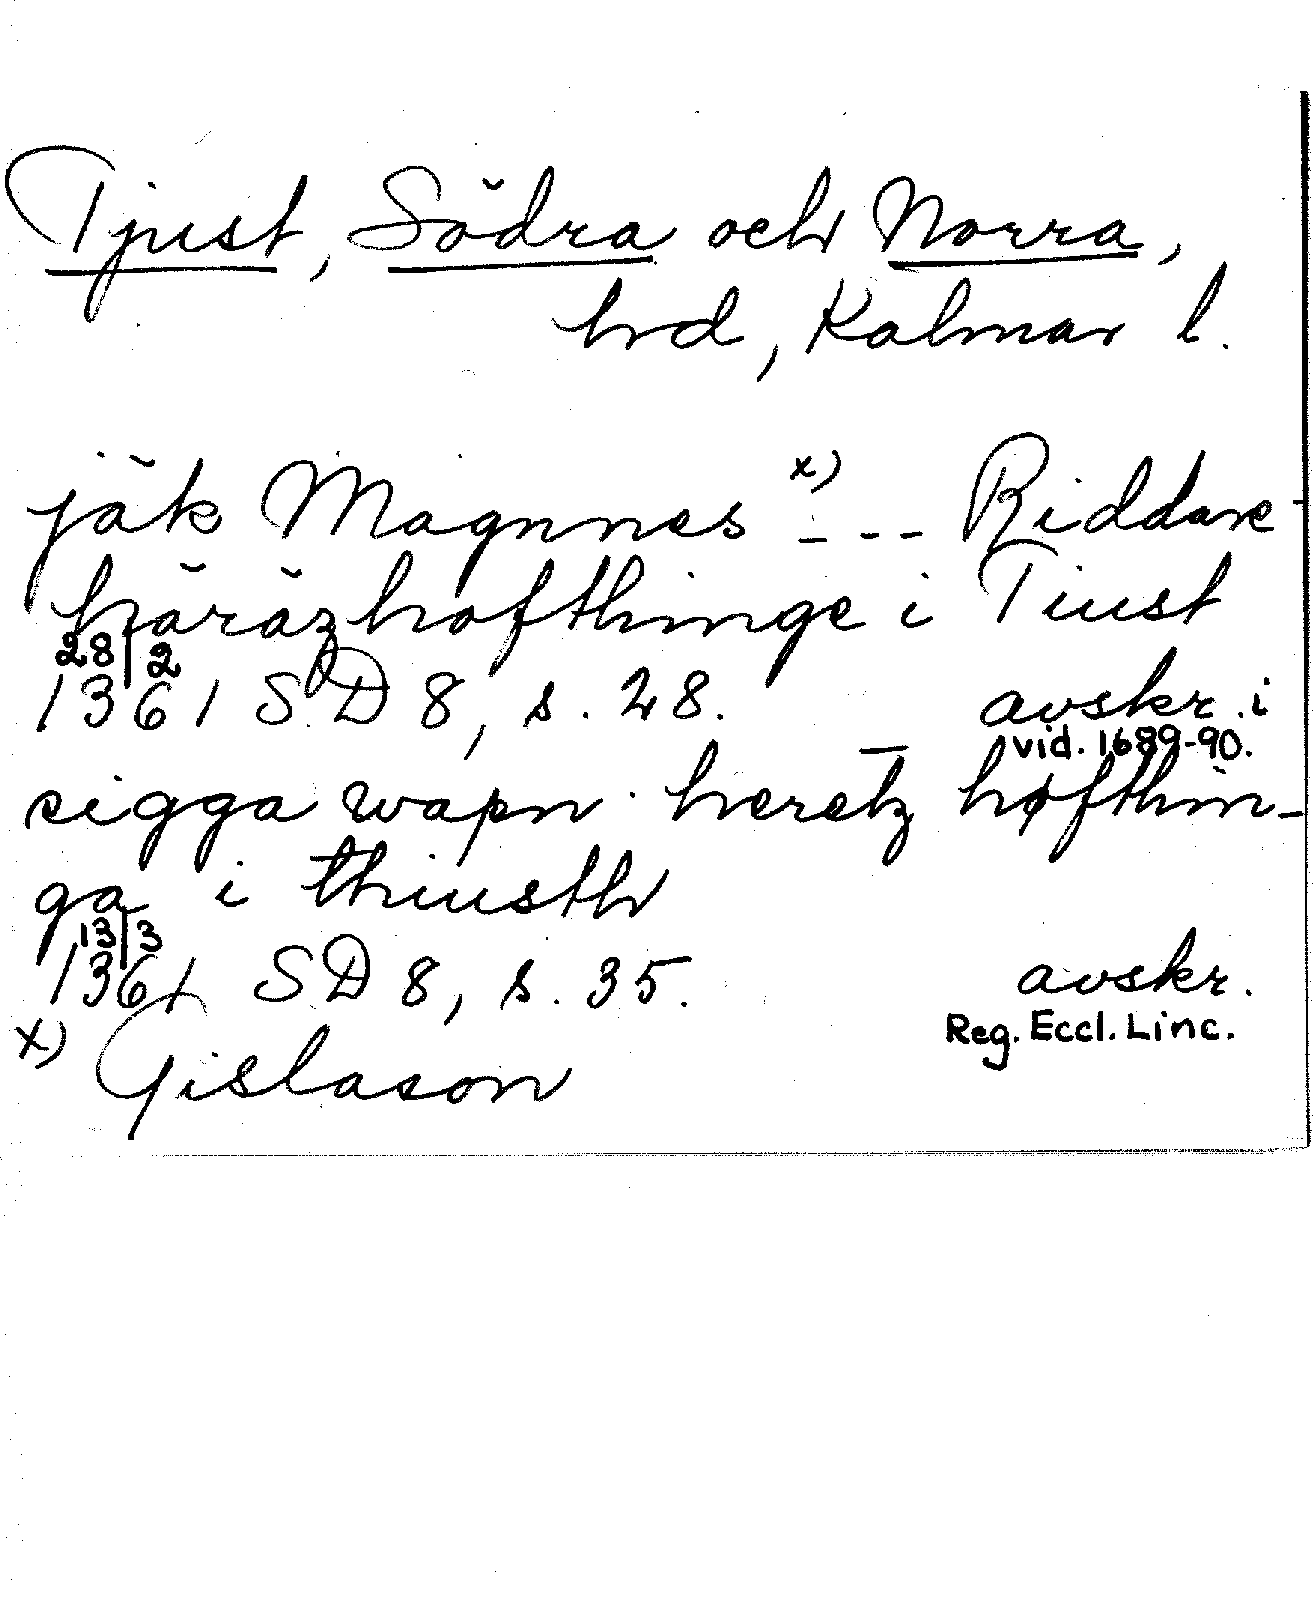 Tjust, Södra och Norra,
hrd, Kalmar l.
jäk Magnnes x) - - - Riddare
häräzhofthinge i Tiust
28/2
1361 SD 8, s. 28. avskr. i
vid. 1689-90.
sigga wapn heretz høfthin-
ga i thiusth
13/3
1361 SD 8, s. 35. avskr.
Reg. Eccl. Linc.
x) Gislason